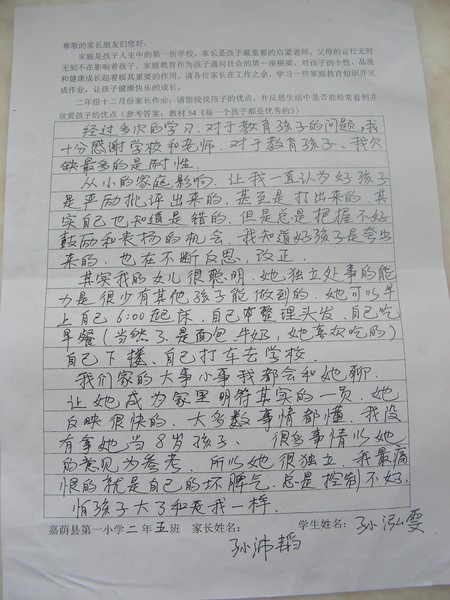 尊敬的家长朋友们您好：
家庭是孩子人生中的第一所学校，家长是孩子最重要的启蒙老师，父母的言行无时
无刻不在影响着孩子，家庭教育作为孩子通向社会的第一座桥梁，对孩子的个性、品质
和健康成长起着极其重要的作用，请各位家长在工作之余，学习一些家庭教育知识并完
成作业，让孩子健康快乐的成长。
二年组十二月份家长作业，请您找找孩子的优点，并反思生活中是否能经常看到并
欣赏孩子的优点（参考答案：教材 54《每一个孩子都是优秀的》）
经过多次的学习，对于教育孩子的问题，我
十分感谢学校和老师，对于教育孩子、我欠
缺最多的是耐性。
从小的家庭影响，让我一直认为好孩子
是严励批评出来的，甚至是打出来的，其
实自己也知道是错的，但是总是把握不好
鼓励和表扬的机会，我知道好孩子是夸出
来的，也在不断反思、改正。
其实我的女儿很聪明，她独立处事的能
力是很少有其他孩子能做到的，她可以早
上自己6:00起床，自己整理头发，自己吃
早餐（当然了，是面包，牛奶，她喜欢吃的）
自己下楼、自己打车去学校。
我们家的大事小事我都会和她聊，
让她成为家里明符其实的一员，她
反映很快的，大多数事情都懂，我没
有拿她当8岁孩子、很多事情以她
的意见为参考，所以她很独立，我最痛
恨的就是自己的坏脾气，总是控制不好，
怕孩子大了和是我一样。
嘉荫县第一小学二年五班 家长姓名： 学生姓名：孙泓雯
孙沛韬